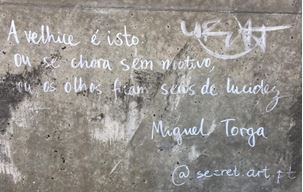 A velhice é isto:
ou se chora sem motivo,
ou os olhos ficam secos de lucidez
Miguel Torga
@secret.art.pt